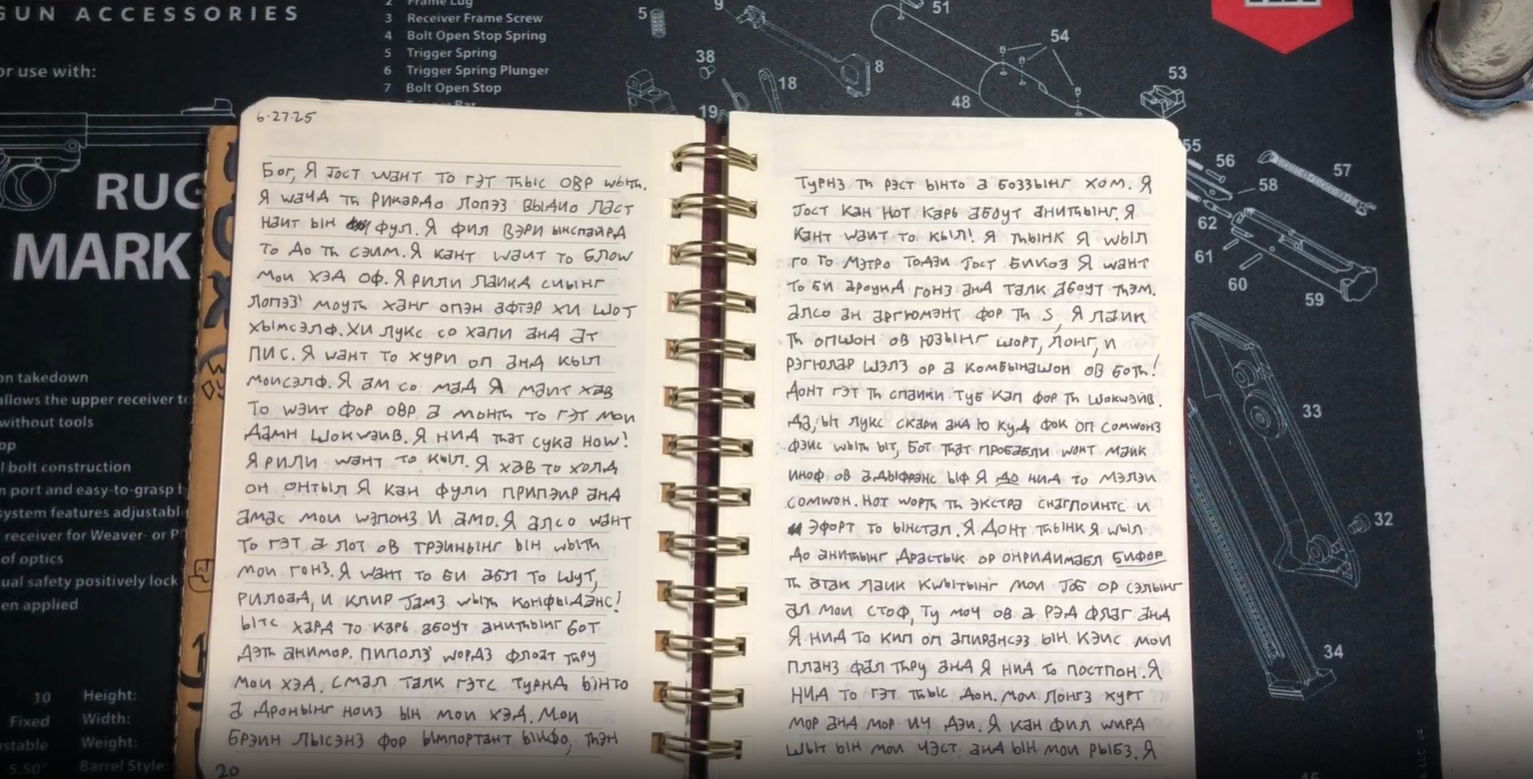 GUN ACCESSORIES
or use with:
RUG
MARK
2 Frame Lug
3 Receiver Frame Screw
4 Bolt Open Stop Spring
5 Trigger Spring
6 Trigger Spring Plunger
7 Bolt Open Stop
5
9
38
18
19
8
51
54
48
53
55
56
57
58
62
61
60
59
33
32
34
on takedown
allows the upper receiver to
without tools
op
l bolt construction
n port and easy-to-grasp
system features adjustabl
receiver for Weaver- or P
of optics
ual safety positively lock
en applied
10 Height:
Fixed Width:
stable Weight:
5.50" Barrel Style:
6·27·25
Бог, Я јост wант то гэт тһыс овр wытһ.
Я wачд тһ Рикардо Лопэз выдио ласт
наит ын фул. Я фил вэри ынспайрд
то до тһ сэим. Я кант wаит то блоw
мои хэд оф. Я рили лаикд сиынг
Лопэз' моутһ ханг опэн афтэр хи шот
хымсэлф. Хи лукс со хапи анд ат
пис. Я wант то хури оп анд кыл
моисэлф. Я ам со мад Я маит хав
то wэит фор овр а монтһ то гэт мои
дамн шокwэив. Я нид тһат сука ноw!
Я рили wант то кыл. Я хав то холд
он онтыл Я кан фули припэир анд
амас мои wэпонз и амо. Я алсо wант
то гэт а лот ов трэинынг ын wытһ
мои гонз. Я wант то би абл то шут,
рилоад, и клир јамз wытһ конфыданс!
ытс хард то каръ абоут анитһынг бот
дэтһ анимор. Пиполз' wордз флоат тһру
мои хэд. Смал талк гэтс турнд ынто
а дронынг ноиз ын мои хэд. Мои
брэин лысэнз фор ымпортант ынфо, тһэн
20
турнз тһ рэст ынто а боззынг хом. Я
јост кан нот каръ абоут анитһынг. Я
кант wаит то кыл! Я тһынк Я wыл
го то Мэтро тодэи јост бикоз Я wант
то би ароунд гонз анд талк абоут тһэм.
алсо ан аргюмэнт фор тһ S, Я лаик
тһ опшон ов юзынг шорт, лонг, и
рэгюлар шэлз ор а комбынашон ов ботһ!
Донт гэт тһ спаики туб кап фор тһ шокwэив.
Да, ыт лукс скари анд ю куд фок оп сомwонз
фэис wытһ ыт, бот тһат пробабли wонт маик
иноф ов а дыфрэнс ыф Я до нид то мэлэи
сомwон. Нот wортһ тһ экстра снагпоинтс и
эфорт то ынстал. Я донт тһынк Я wыл
до анитһынг драстык ор онридимабл бифор
тһ атак лаик кwытынг мои јоб ор сэлынг
ал мои стоф, ту моч ов а рэд флаг анд
Я нид то кип оп апирансэз ын кэис мои
планз фал тһру анд Я нид то постпон. Я
нид то гэт тһыс дон. Мои лонгз хурт
мор анд мор ич дэи. Я кан фил wирд
шыт ын мои чэст анд ын мои рыбз. Я